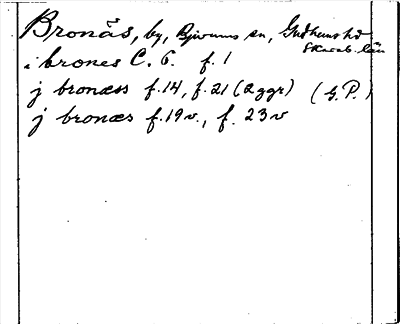 Bronäs, by, Bjurums sn, Gudhems hd
Skarab. län
i brones C. 6. f. 1
j bronæss f. 14, f. 21 (2 ggr) (G. P.)
j bronæs f. 19v., f. 23v